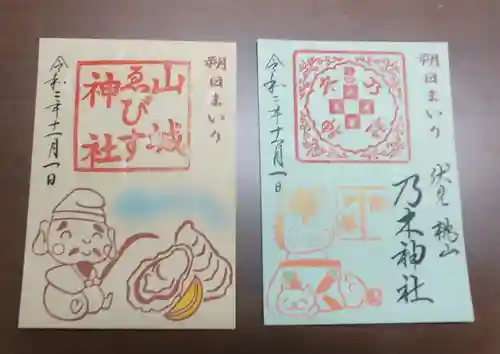 朔日まいり
山城
ゑびす
神社
令和二年十一月一日
朔日まいり
伏見桃山
乃木神社
令和二年十一月一日